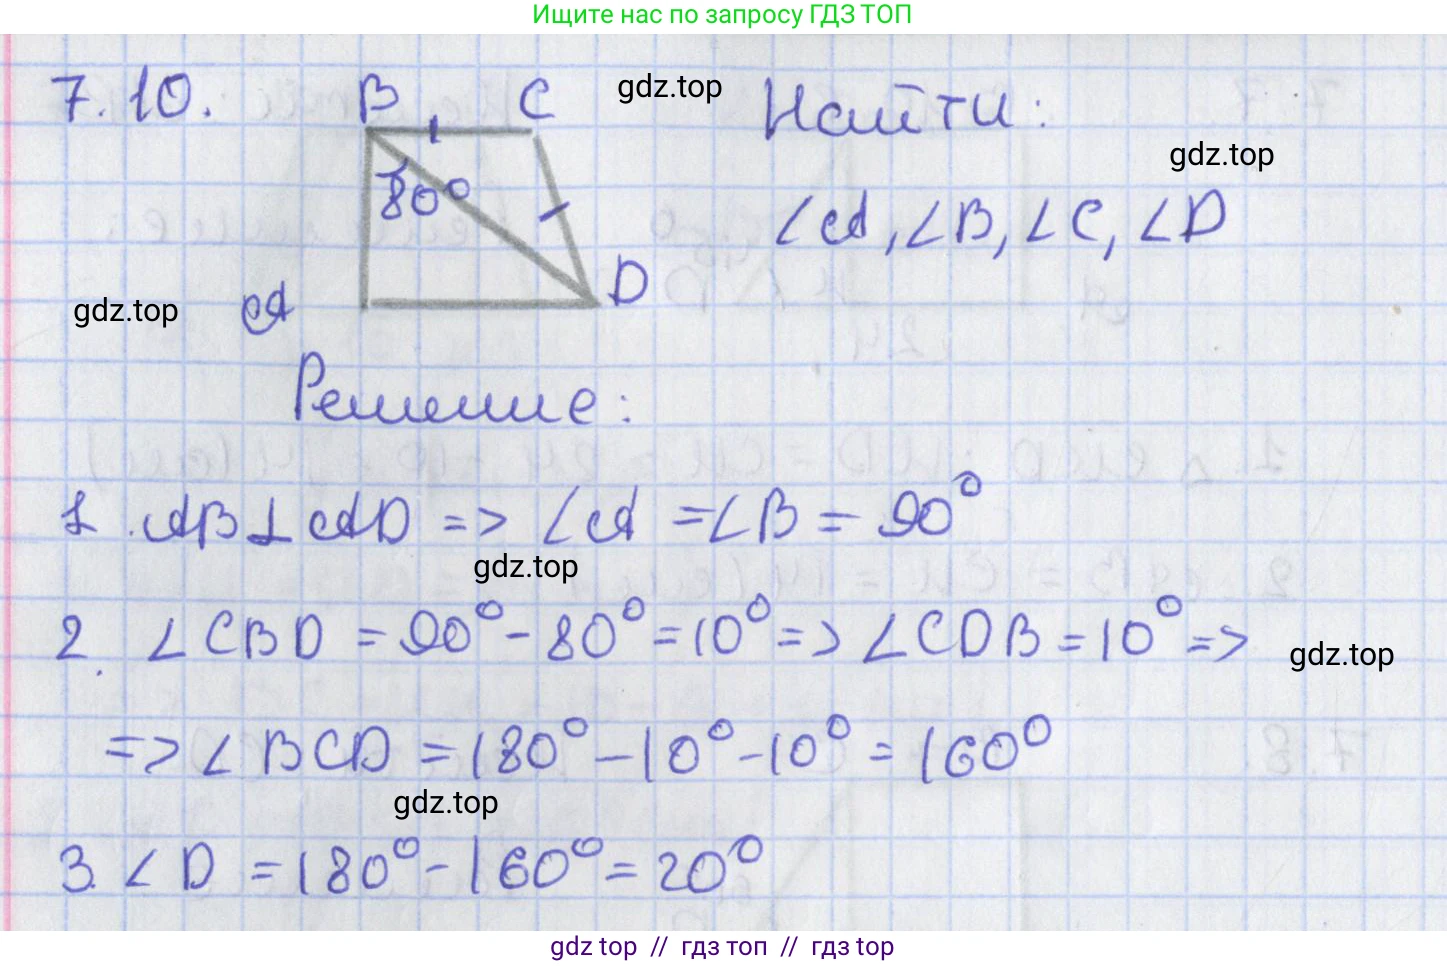 Ищите нас по запросу ГДЗ ТОП
7.10. B C gdz.top Найти:
gdz.top
80°
∠A, ∠B, ∠C, ∠D
gdz.top A D
Решение:
1. AB⊥AD => ∠A = ∠B = 90°
gdz.top
2. ∠CBD = 90° - 80° = 10° => ∠CDB = 10° =>
gdz.top
=> ∠BCD = 180° - 10° - 10° = 160°
gdz.top
3. ∠D = 180° - 160° = 20°
gdz top // гдз топ // гдз top